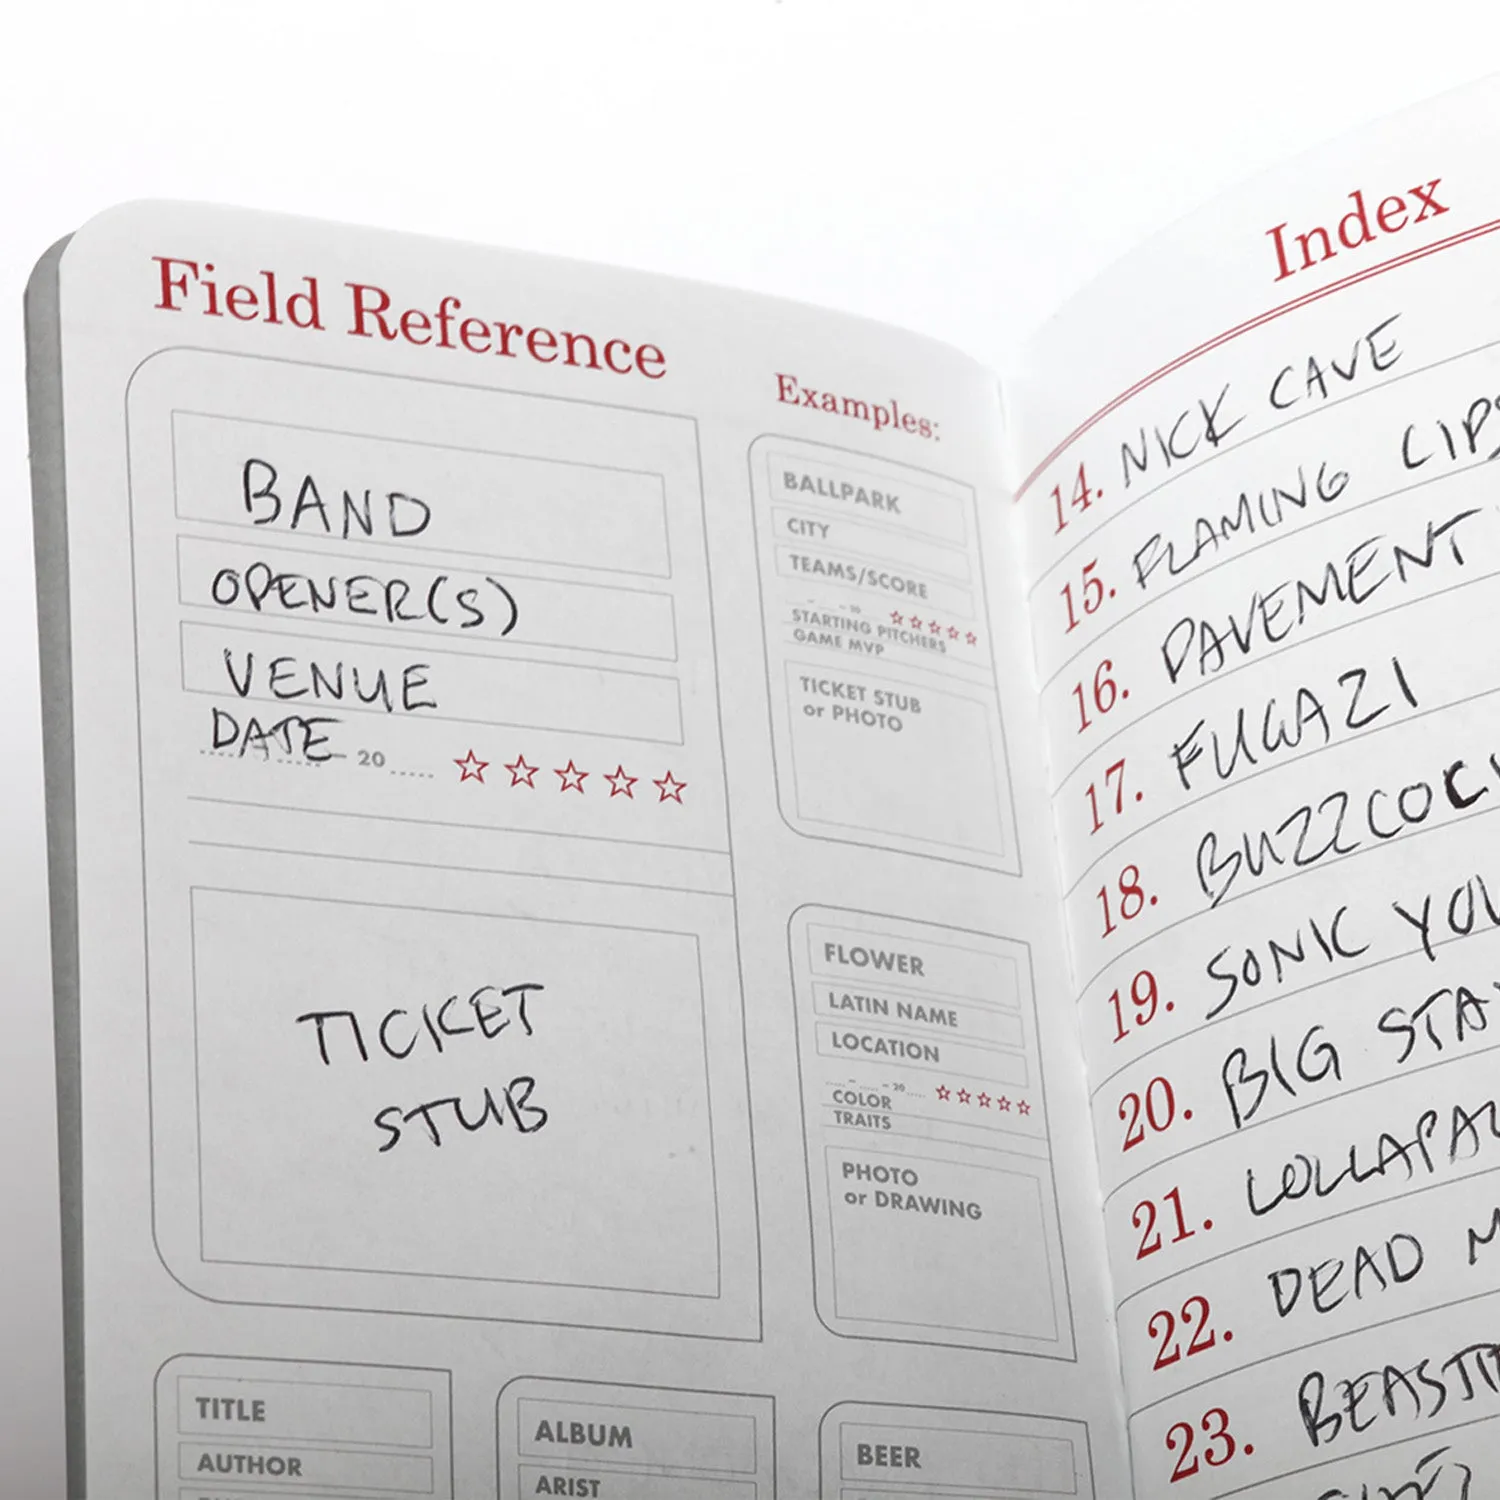 Field Reference
BAND
OPENER(S)
VENUE
DATE 20
TICKET
STUB
Examples:
BALLPARK
CITY
TEAMS/SCORE
20
STARTING PITCHERS
GAME MVP
TICKET STUB
or PHOTO
FLOWER
LATIN NAME
LOCATION
20
COLOR
TRAITS
PHOTO
or DRAWING
TITLE
AUTHOR
ALBUM
ARIST
BEER
Index
14. NICK CAVE
15. FLAMING LIPS
16. PAVEMENT
17. FUGAZI
18. BUZZCOC
19. SONIC YOU
20. BIG STA
21. LOLLAPAL
22. DEAD M
23. BEASTI